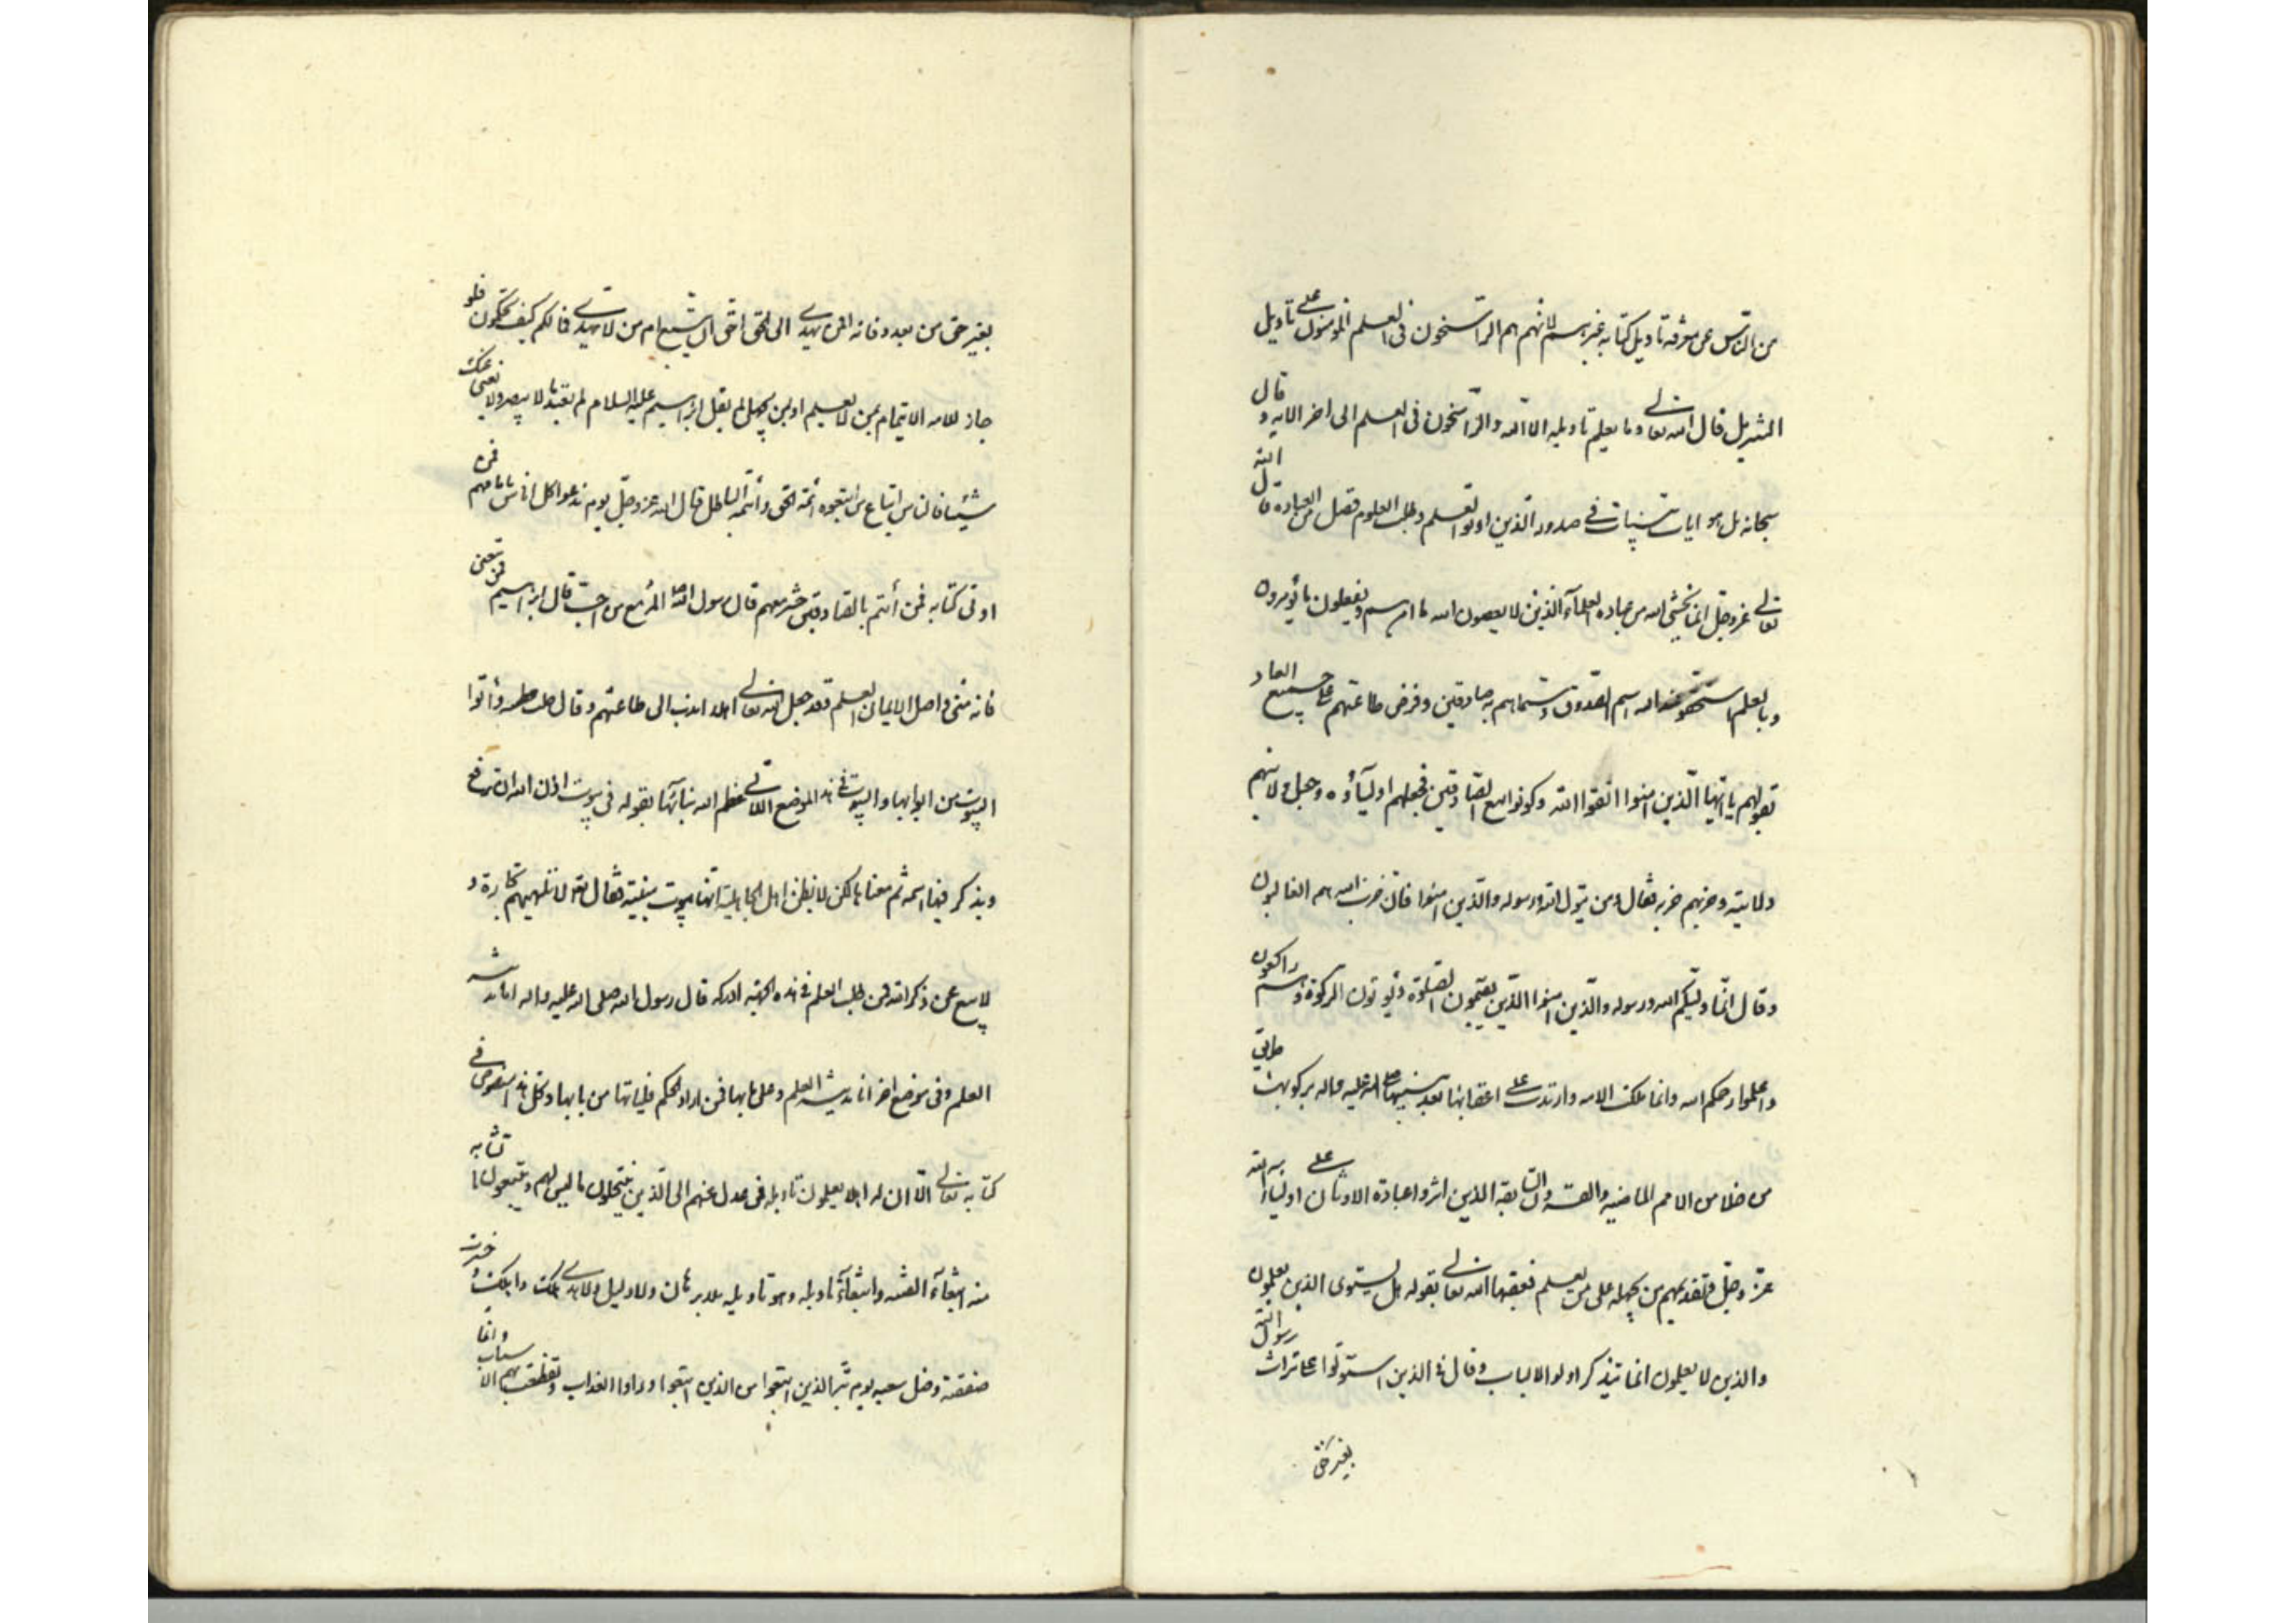 من الناس عن معرفة تاويل كتابه غيرهم لانهم هم الراسخون في العلم المأمونون على تاويل
التنزيل قال الله تعالى وما يعلم تاويله الا الله والراسخون في العلم الى اخر الايه و قال
سبحانه بل هو ايات بينات في صدور الذين اوتوا العلم وطلب العلوم فضل من العبادة قال الله
تعالى عز وجل انما يخشى الله من عباده العلمآء الذين لا يعصون الله ما امرهم ويفعلون ما يؤمرون
وبالعلم استحقوا عند الله اسم الصدق وسماهم به صادقين وفرض طاعتهم على جميع العباد
بقولهم يا ايها الذين امنوا اتقوا الله وكونوا مع الصادقين فجعلهم اوليآؤه وجعل ولايتهم
ولايته وحزبهم حزبه فقال ومن يتول الله ورسوله والذين امنوا فان حزب الله هم الغالبون
وقال انما وليكم الله ورسوله والذين امنوا الذين يقيمون الصلوة ويؤتون الزكوة وهم راكعون
واعلموا رحمكم الله وانما هلكت الامه وارتدت على اعقابها بعد نبيها صلى الله عليه واله بركوبها طريق
من خلا من الامم الماضيه والقرون السابقة الذين اثروا عبادة الاوثان على اولياء الله
عز وجل وتقديمهم من يجهل على من يعلم فعنفها الله تعالى بقوله هل يستوى الذين يعلمون
والذين لا يعلمون انما يتذكر اولوا الالباب وقال في الذين استولوا على تراث رسول الله
بغير حق
بغير حق من بعد وفاته افمن يهدى الى الحق احق ان يتبع ام من لا يهدى فما لكم كيف تحكمون فلو
جاز للامه الايتمام بمن لا يعلم او بمن يجهل لم يقل ابراهيم عليه السلام لم تعبد ما لا يبصر ولا يغنى عنك
شيئا فالناس اتباع من اتبعوه ائمة الحق وائمة الباطل قال الله عز وجل يوم ندعوا كل اناس بامامهم فمن
اوتى كتابه فمن أئتم بالصادقين حشر معهم قال رسول الله المرء مع من احب قال ابراهيم فمن تبعنى
فانه منى واصل الايمان العلم وقد جعل الله تعالى اهلا ندب الى طاعتهم وقال وأتوا
البيوت من ابوابها والبيوت في هذا الموضع اللاتى عظم الله بنائها بقوله في بيوت اذن الله ان ترفع
ويذكر فيها اسمه ثم معناها لكن لا يظن اهل الجاهلية انها بيوت مبنية فقال لا تلهيهم تجارة و
لا بيع عن ذكر الله فمن طلب العلم في هذه الجهة ادركه قال رسول الله صلى الله عليه واله انا مدينة
العلم وفى موضع اخر انا مدينة العلم وعلى بابها فمن اراد الحكم فلياتها من بابها وكل هذا منصوص في
كتابه تعالى الا ان له اهلا يعلمون تاويله فمن عدل عنهم الى الذين ينتحلون ما ليس لهم ويتبعون ما تشابه
منه ابتغآء الفتنه وابتغآء تاويله وهو تاويله بلا برهان ولا دليل ولا هدى هلك واهلك و خسرت
صفقته وضل سعيه يوم تبر الذين اتبعوا من الذين اتبعوا وراوا العذاب وتقطعت بهم الاسباب وانما